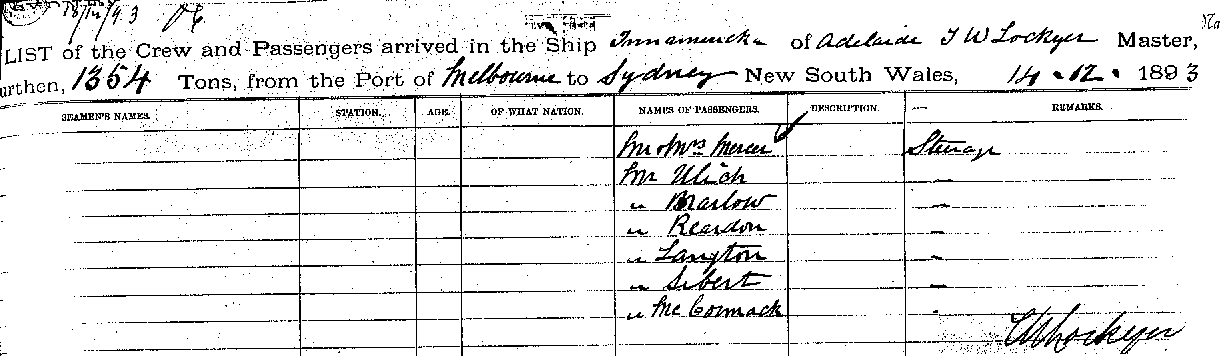 18/12/93
LIST of the Crew and Passengers arrived in the Ship Innamincka of Adelaide T W Lockyer Master,
urthen, 1354 Tons, from the Port of Melbourne to Sydney New South Wales, 14.12.1893
SEAMEN'S NAMES. STATION. AGE. OF WHAT NATION. NAMES OF PASSENGERS. DESCRIPTION. REMARKS.
Mr & Mrs Mercer Steerage
Mr Ulich "
" Barlow "
" Reardon "
" Langton "
" Sibert "
" McCormack "
Lockyer